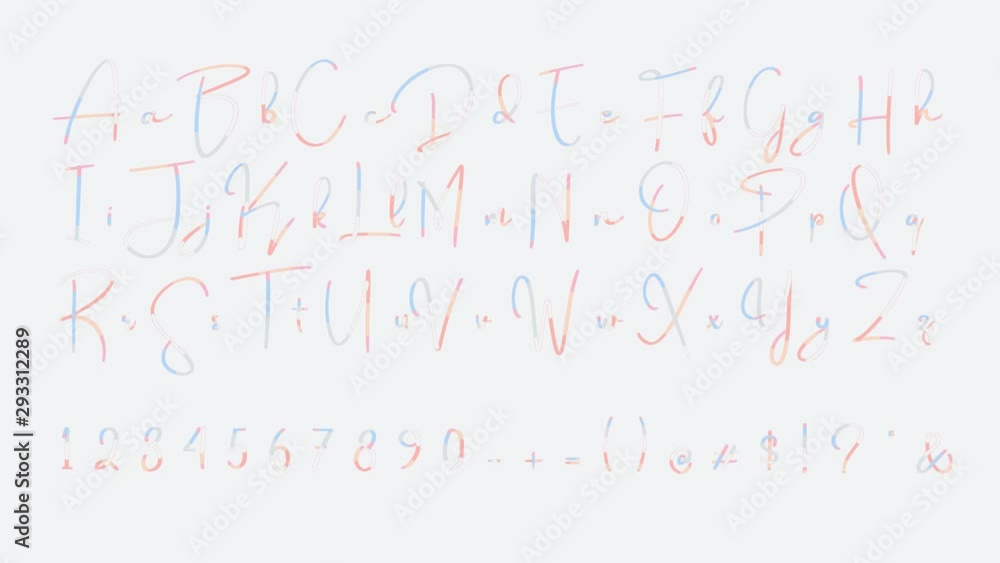 A a B b C c D d E e F f G g H h
I i J j K k L l M m N n O o P p Q q
R r S s T t U u V v W w X x Y y Z z
1 2 3 4 5 6 7 8 9 0 - + = ( ) @ # $ ! ? &
Adobe Stock | #293312289
Adobe Stock